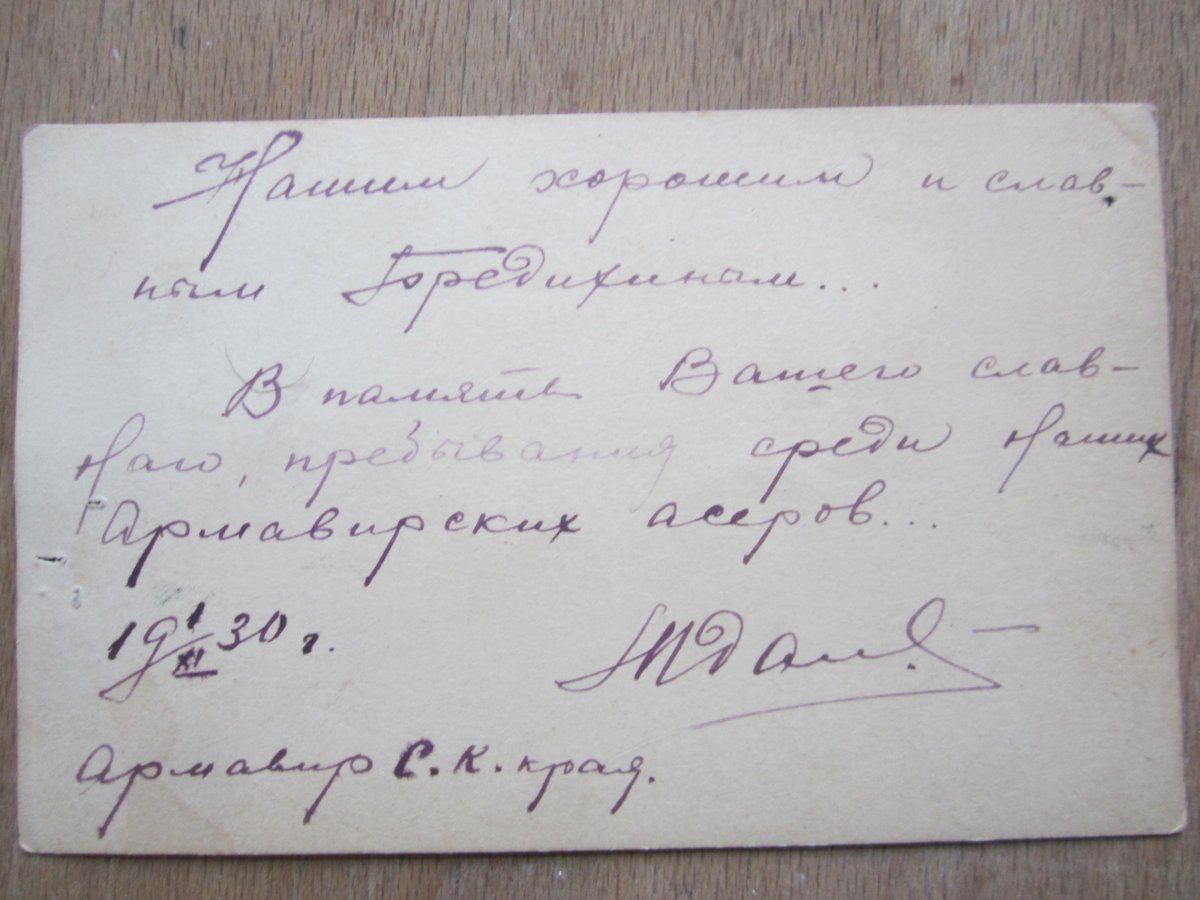 Нашим хорошим и слав-
ным Бредихиным...
В память Вашего слав-
ного, пребывания среди наших
Армавирских асеров...
19 1/XI 30 г.
Армавир С.К. края.